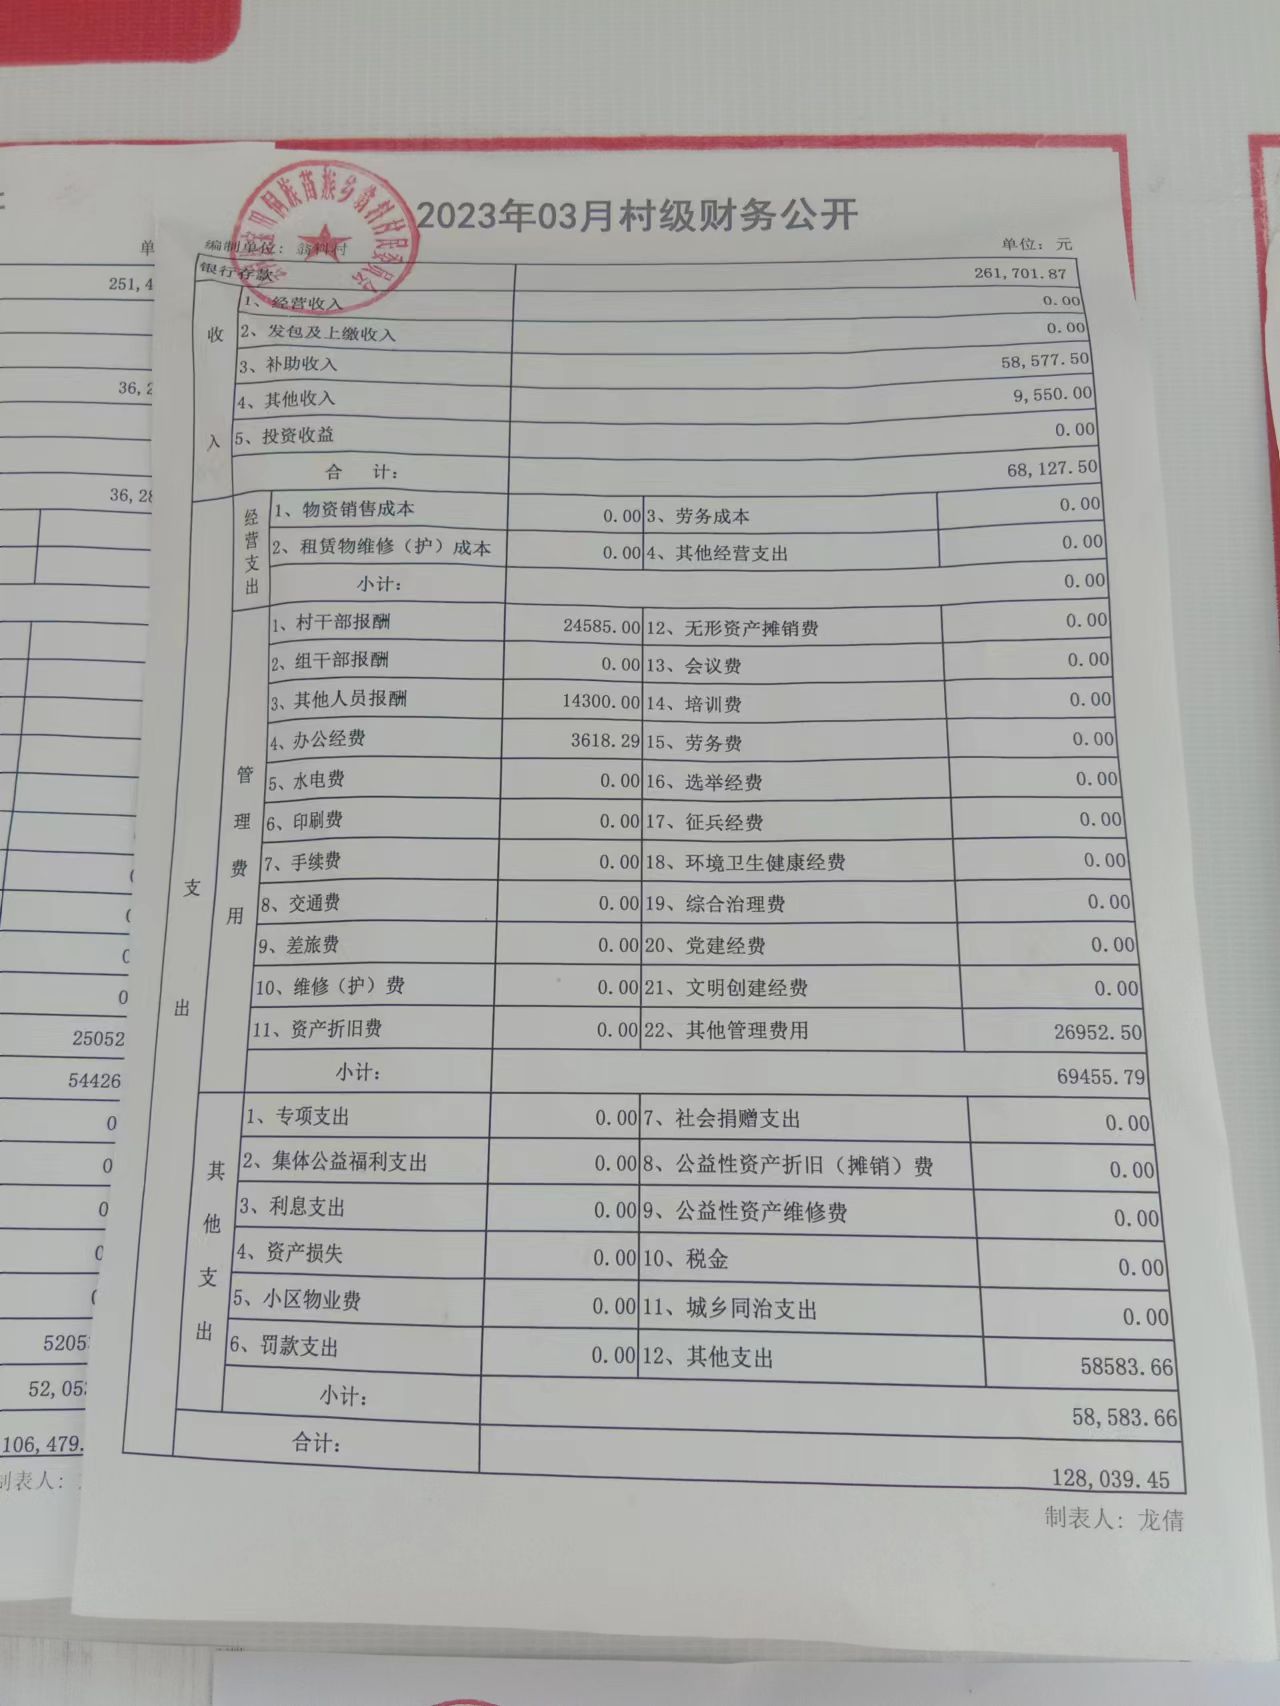 2023年03月村级财务公开
编制单位：翁科村 单位：元
银行存款 261,701.87
收入
1、经营收入 0.00
2、发包及上缴收入 0.00
3、补助收入 58,577.50
4、其他收入 9,550.00
5、投资收益 0.00
合 计： 68,127.50
支出
经营支出
1、物资销售成本 0.00 3、劳务成本 0.00
2、租赁物维修（护）成本 0.00 4、其他经营支出 0.00
小计： 0.00
管理费用
1、村干部报酬 24585.00 12、无形资产摊销费 0.00
2、组干部报酬 0.00 13、会议费 0.00
3、其他人员报酬 14300.00 14、培训费 0.00
4、办公经费 3618.29 15、劳务费 0.00
5、水电费 0.00 16、选举经费 0.00
6、印刷费 0.00 17、征兵经费 0.00
7、手续费 0.00 18、环境卫生健康经费 0.00
8、交通费 0.00 19、综合治理费 0.00
9、差旅费 0.00 20、党建经费 0.00
10、维修（护）费 0.00 21、文明创建经费 0.00
11、资产折旧费 0.00 22、其他管理费用 26952.50
小计： 69455.79
其他支出
1、专项支出 0.00 7、社会捐赠支出 0.00
2、集体公益福利支出 0.00 8、公益性资产折旧（摊销）费 0.00
3、利息支出 0.00 9、公益性资产维修费 0.00
4、资产损失 0.00 10、税金 0.00
5、小区物业费 0.00 11、城乡同治支出 0.00
6、罚款支出 0.00 12、其他支出 58583.66
小计： 58,583.66
合计： 128,039.45
制表人：龙倩
单
251,4
36,2
36,28
0
0
25052
54426
0
0
0
5205
52,05
106,479.
制表人：